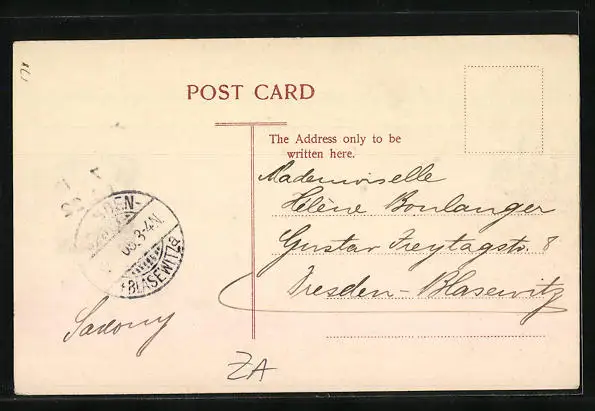 POST CARD
The Address only to be
written here.
Mademoiselle
Hélène Boulanger
Gustav Freytagstr. 8
Dresden-Blasewitz
Saxony
BLASEWITZ
3-4N.
ZA